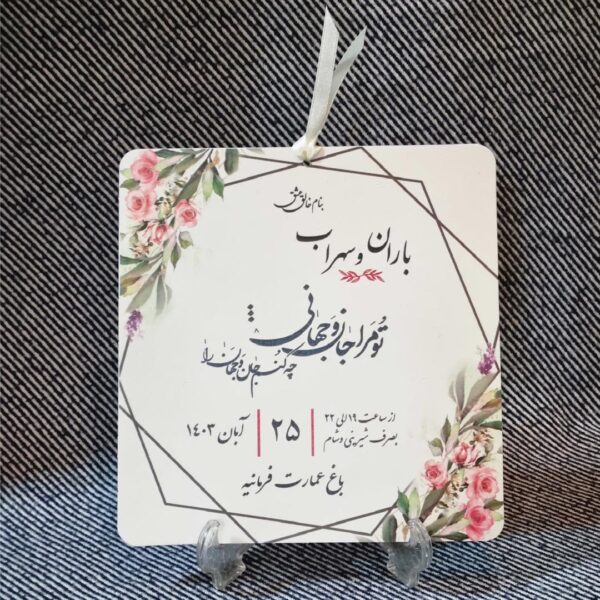 بنام خالق عشق
باران و سهراب
تو مرا جان و جهانی
چه کنم جان و جهان را
از ساعت ۱۹ الی ۲۲
بصرف شیرینی و شام
۲۵
آبان ۱۴۰۳
باغ عمارت فرمانیه